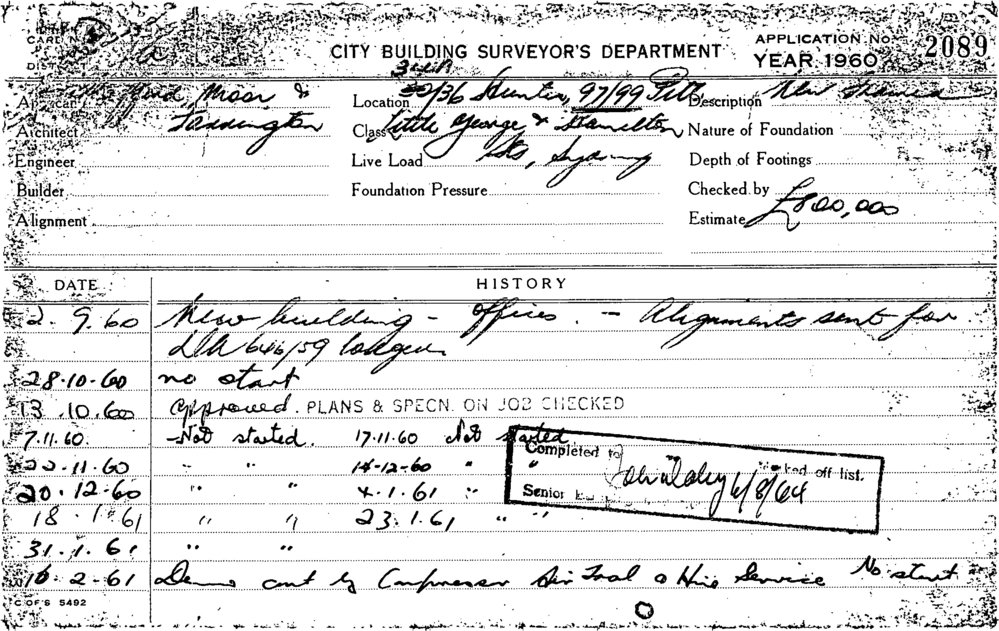 CARD No.
CITY BUILDING SURVEYOR'S DEPARTMENT
APPLICATION No. 2089
YEAR 1960
Applicant Ford, Moor &
Location /36 Hunter, 97/99 Pitt
Description New
Architect
Class Little George & Hamilton
Nature of Foundation
Engineer
Live Load Sts, Sydney
Depth of Footings
Builder
Foundation Pressure
Checked by
Alignment
Estimate £800,000
DATE HISTORY
2. 9. 60 New building - offices. - Alignments sent for
DA 646/59 lodged
28-10-60 no start
13.10.60 Approved. PLANS & SPECN. ON JOB CHECKED
7.11.60. Not started. 17.11.60 Not started
22-11-60 " " 14-12-60 " "
20.12.60 " " 4.1.61 " "
18.1.61 " " 23.1.61 " "
31.1.61 " "
Completed
off list.
Senior
6/8/64
16-2-61 Demo cont by Compressor Air Tool & Hire Service No start
C OF S 5492